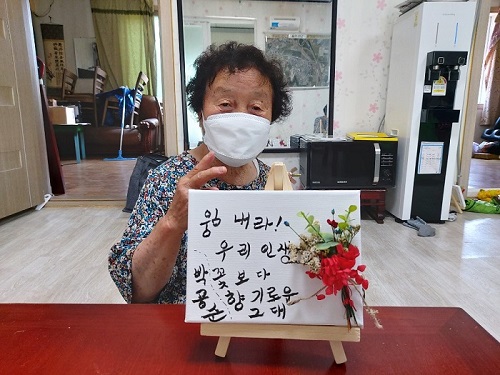 힘 내라!
우리 인생
박 꽃 보다
공 향기로운
순 그대